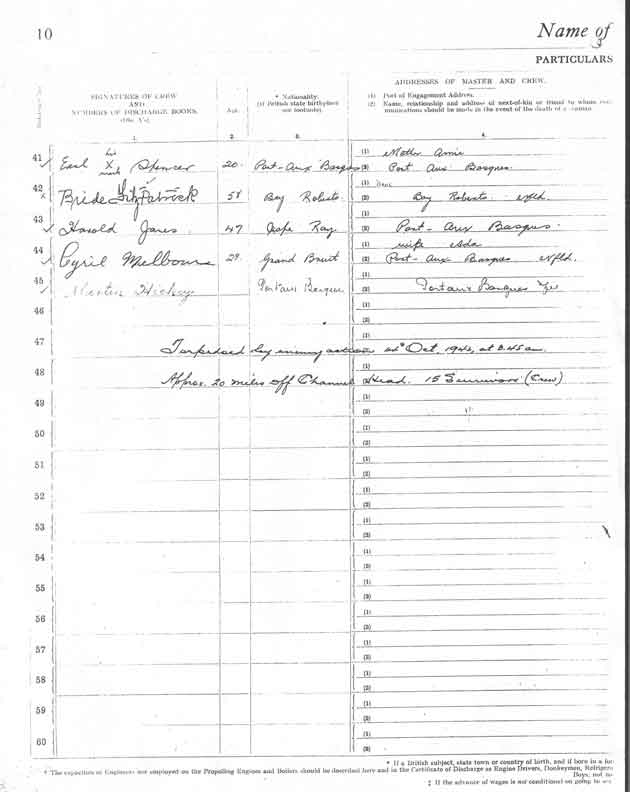 10
Name of
PARTICULARS
SIGNATURES OF CREW
AND
NUMBERS OF DISCHARGE BOOKS.
Age.
* Nationality.
(If British state birthplace
ADDRESSES OF MASTER AND CREW.
(1) Port of Engagement Address.
(2) Name, relationship and address of next-of-kin or friend to whom com-
munications should be made in the event of the death of a seaman
1. 2. 3. 4.
41 Earl his X mark Spencer 20 Port-Aux Basques (1) Mother Annie
(2) Port Aux Basques
42 Bride FitzPatrick 58 Bay Roberts (1)
(2) Bay Roberts Nfld.
43 Harold Janes 47 Cape Ray (1)
(2) Port-Aux Basques
44 Cyril Melbourne 29 Grand Bruit (1) wife Ada
(2) Port-Aux Basques Nfld.
45 Martin Hickey Port aux Basques (1)
(2) Port aux Basques
46 (1)
(2)
47 (1)
Torpedoed by enemy action Oct. 1942, at
48 (1)
Approx. 20 miles off Channel Head. 15 Survivors (Crew)
49 (1)
(2)
50 (1)
(2)
51 (1)
(2)
52 (1)
(2)
53 (1)
(2)
54 (1)
(2)
55 (1)
(2)
56 (1)
(2)
57 (1)
(2)
58 (1)
(2)
59 (1)
(2)
60 (1)
(2)
* If a British subject, state town or country of birth, and if born in a for
† The capacities of Engineers not employed on the Propelling Engines and Boilers should be described here and in the Certificate of Discharge as Engine Drivers, Donkeymen, Refrigera
Boys, not as
‡ If the advance of wages is not conditional on going to sea